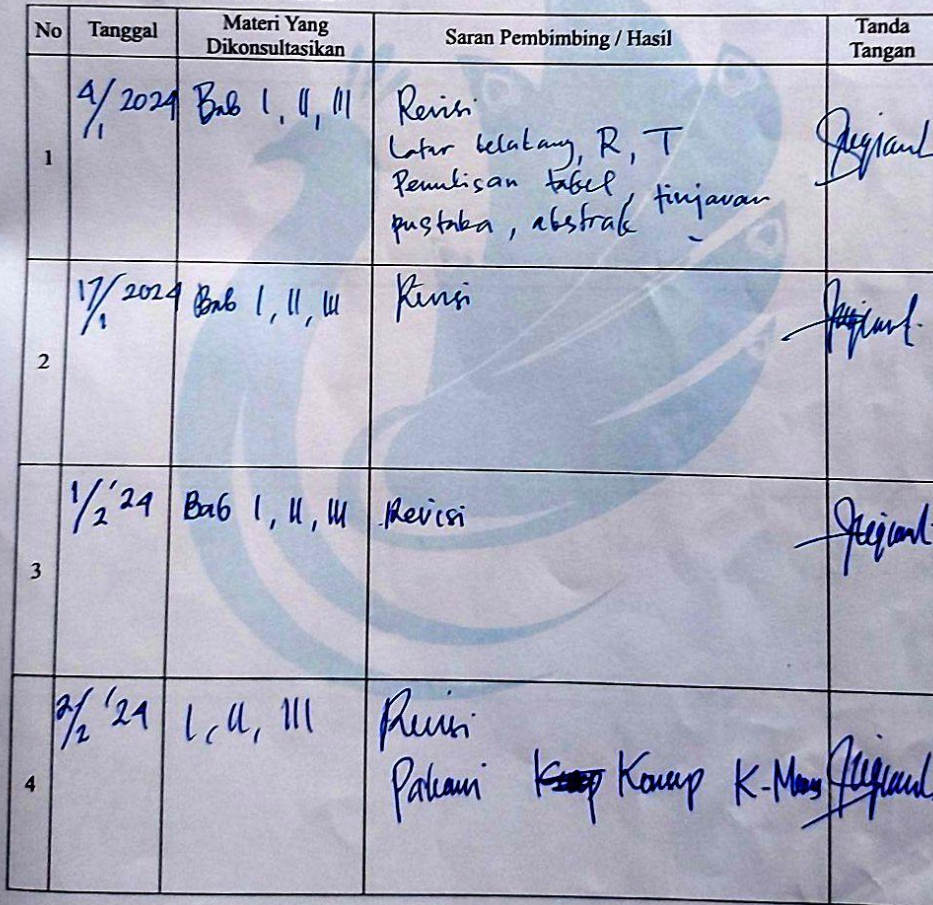 No Tanggal Materi Yang Dikonsultasikan Saran Pembimbing / Hasil Tanda Tangan
1 4/1 2024 Bab I, II, III Revisi
Latar belakang, R, T
Penulisan tabel, tinjauan
pustaka, abstrak
2 17/1 2024 Bab I, II, III Revisi
3 1/2 '24 Bab I, II, III Revisi
4 2/2 '24 I, II, III Revisi
Pahami Konsep K-Means